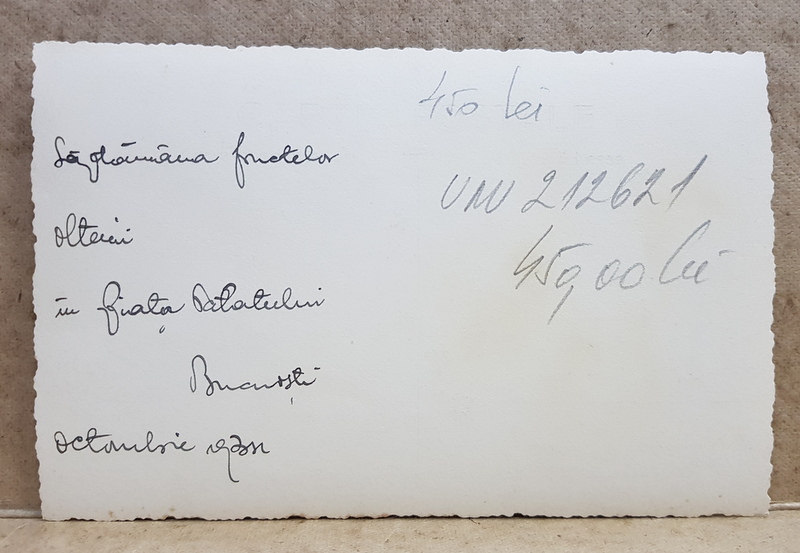 450 lei
Săptămâna fructelor
UNV 212621
olteni
450,00 lei
în Piața Palatului
București
octombrie